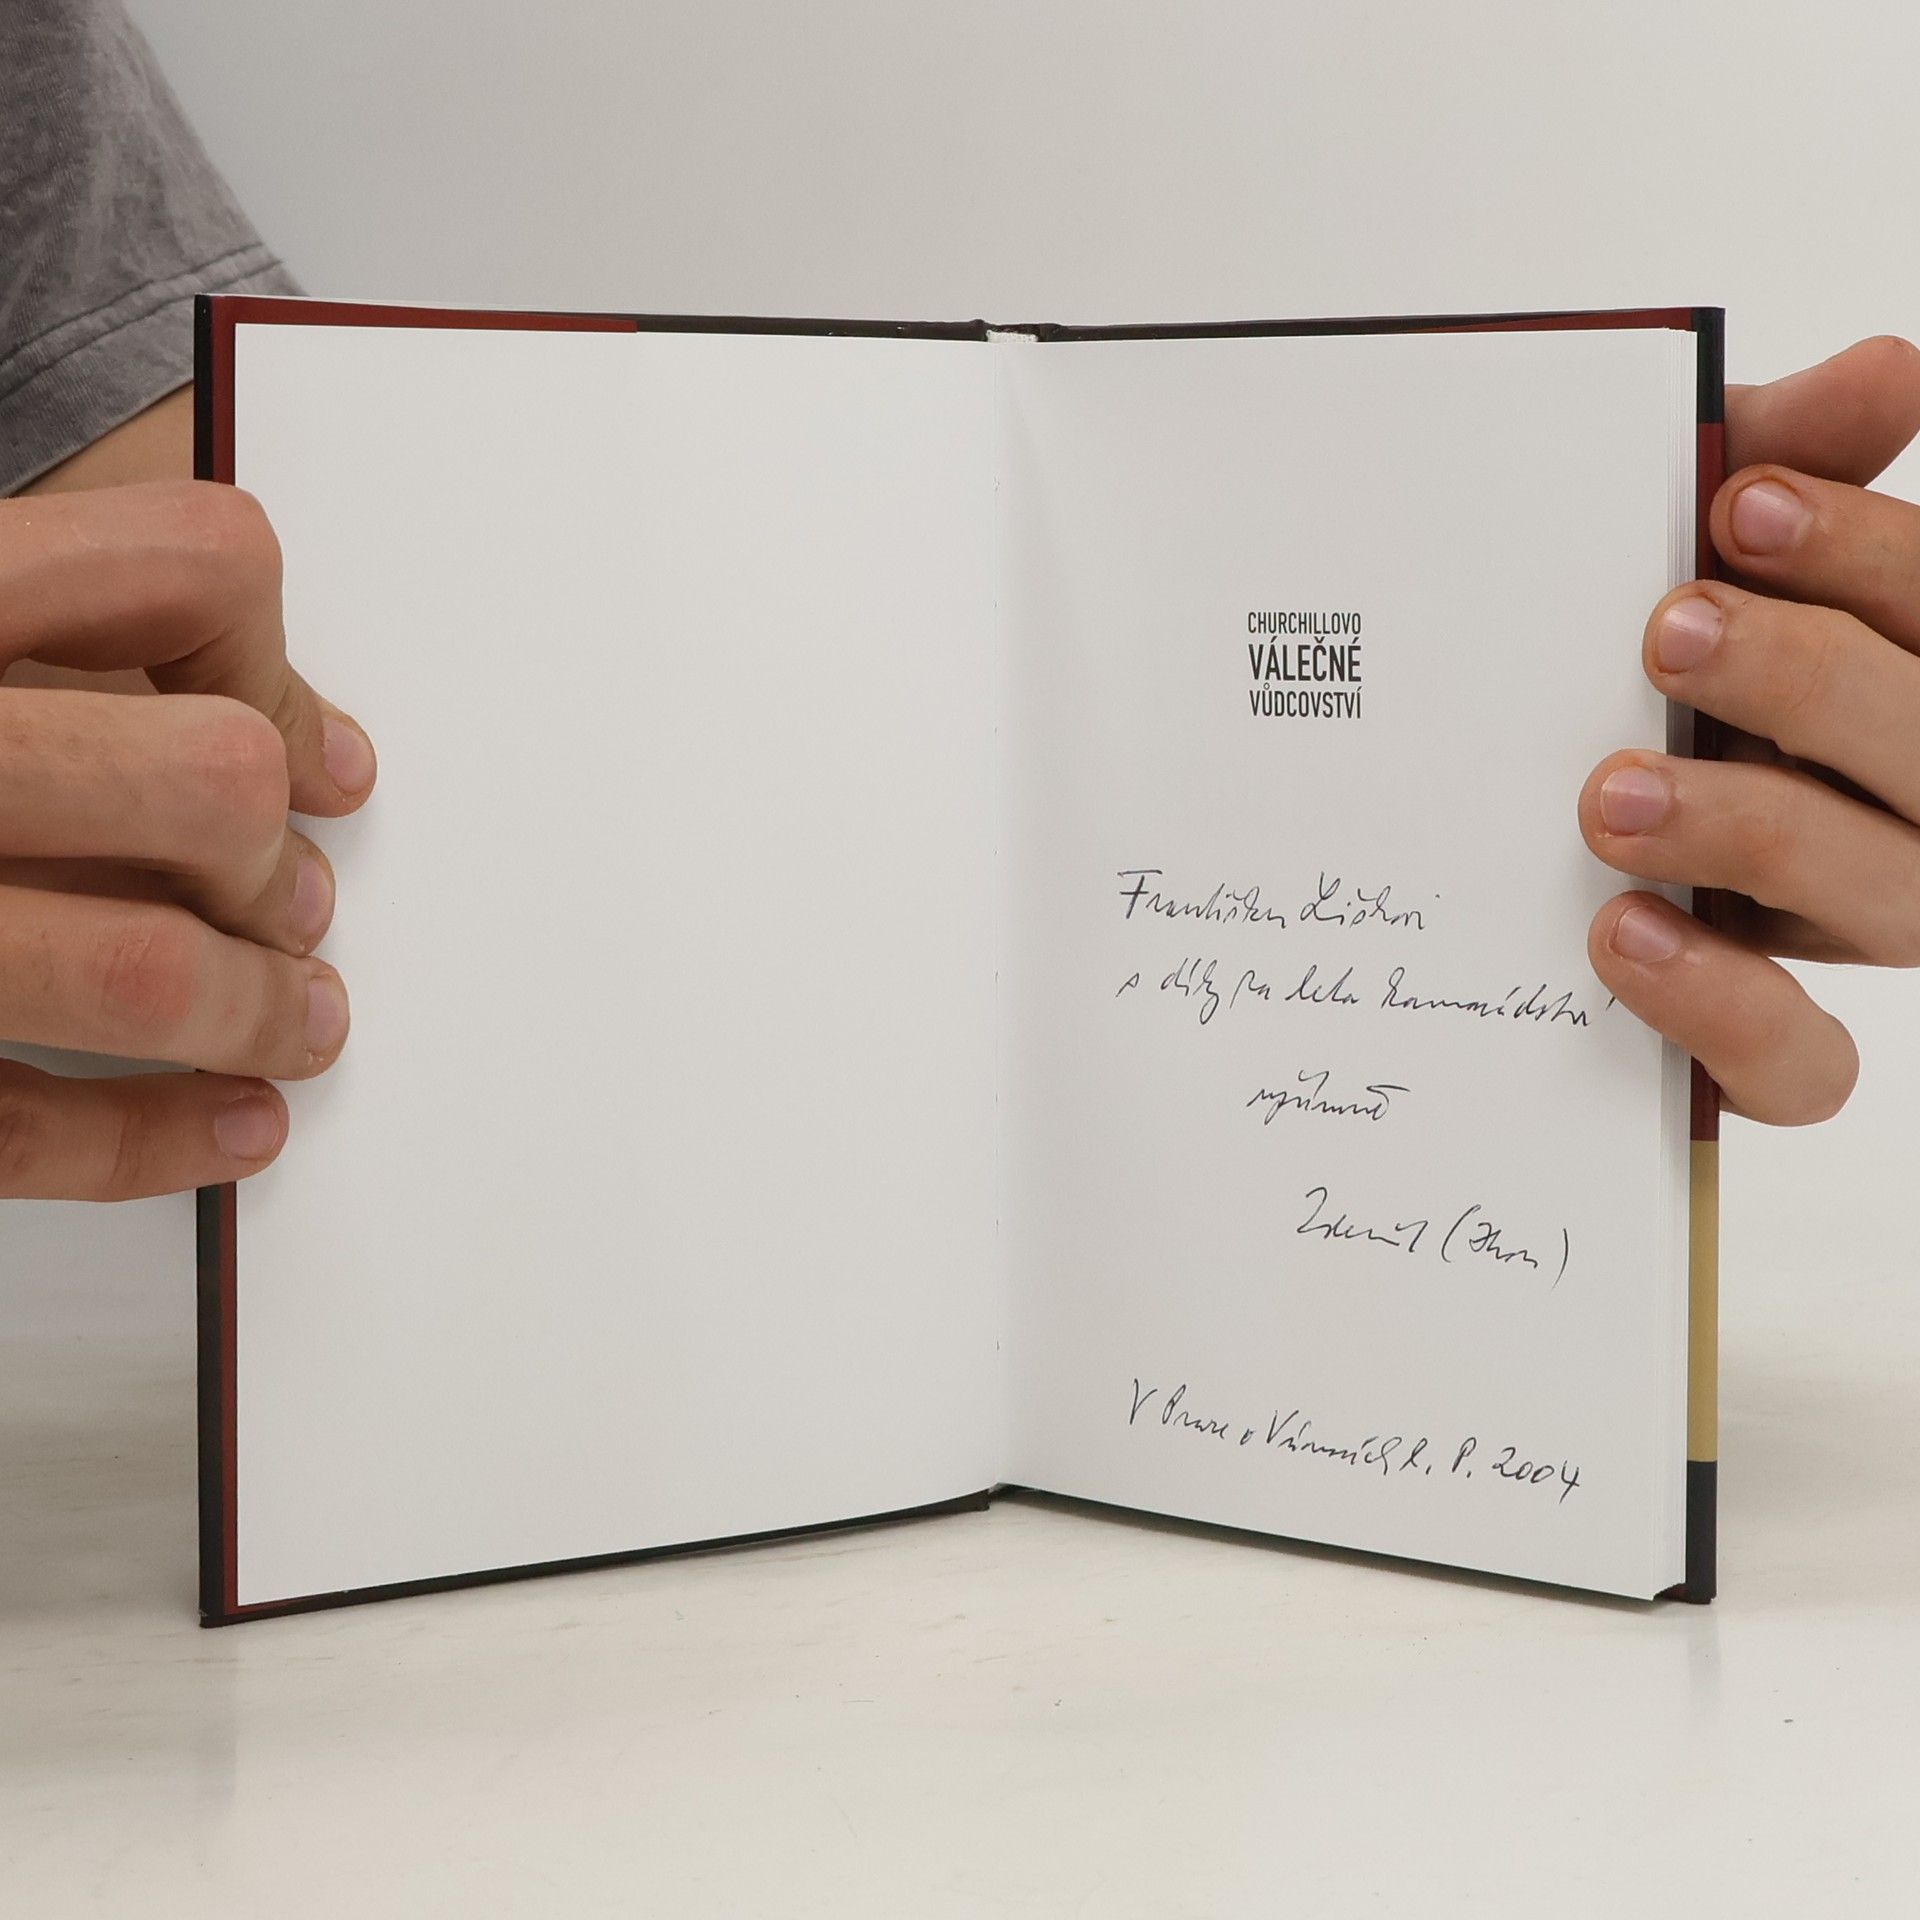 CHURCHILLOVO
VÁLEČNÉ
VŮDCOVSTVÍ
Františku Liškovi
s díky za léta kamarádství
upřímně
Zdeněk
V Praze o Vánocích l. P. 2004